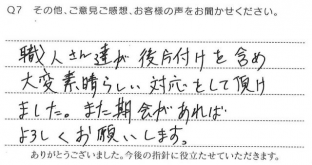 Q7 その他、ご意見ご感想、お客様の声をお聞かせください。
職人さん達が後片付けを含め
大変素晴らしい対応をして頂け
ました。また期会があれば
よろしくお願いします。
ありがとうございました。今後の指針に役立たせていただきます。